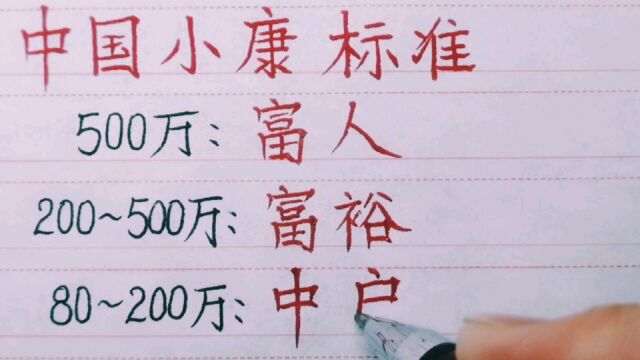 中国小康标准
500万:富人
200~500万:富裕
80~200万:中户